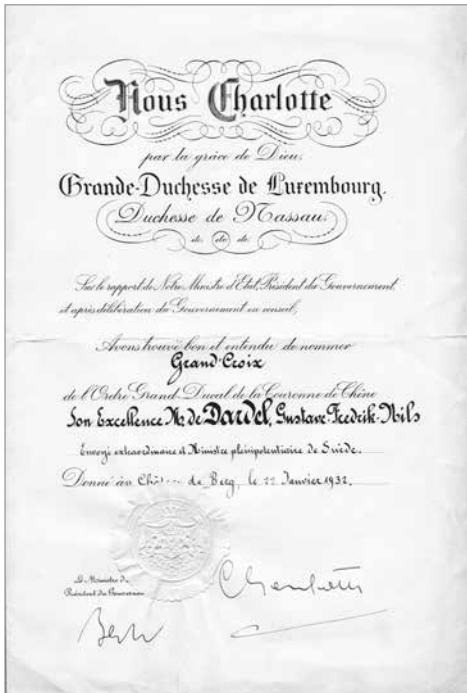 Nous Charlotte
par la grâce de Dieu,
Grande-Duchesse de Luxembourg,
Duchesse de Nassau,
de. de. de.
Sur le rapport de Notre Ministre d'Etat, Président du Gouvernement
et après délibération du Gouvernement en conseil;
Avons trouvé bon et entendu de nommer
Grand-Croix
de l'Ordre Grand-Ducal de la Couronne de Chêne
Son Excellence Mr de Dardel, Gustave-Fredrik-Nils
Envoyé extraordinaire et Ministre plénipotentiaire de Suède.
Donné au Château de Berg, le 22 Janvier 1932.
Le Ministre d'
Président du Gouvernement
Charlotte